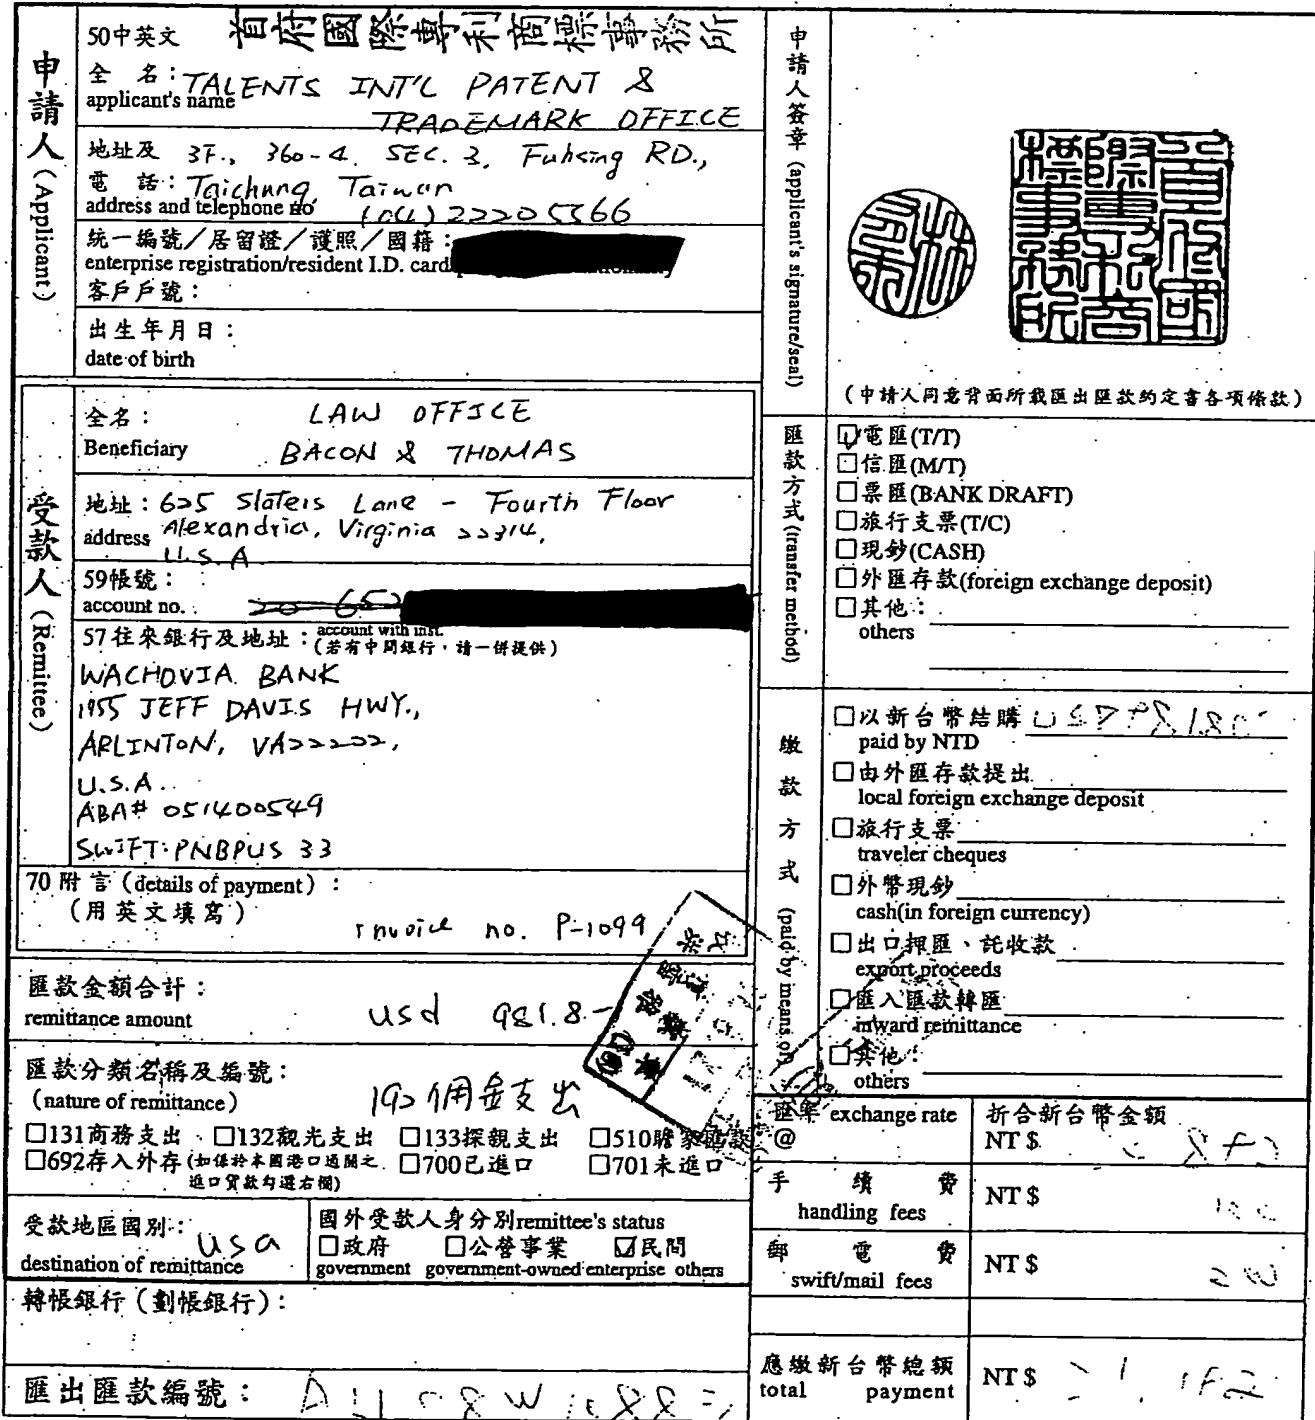 申請人 (Applicant)
50中英文 首府國際專利商標事務所
全 名：TALENTS INT'L PATENT &
applicant's name
TRADEMARK OFFICE
地址及 3F., 360-4. SEC. 3, Fuhsing RD.,
電 話：Taichung Taiwan
address and telephone no (04) 22205566
統一編號／居留證／護照／國籍：
enterprise registration/resident I.D. card
客戶戶號：
出生年月日：
date of birth
受款人 (Remittee)
全名： LAW OFFICE
Beneficiary BACON & THOMAS
地址：625 Slaters Lane - Fourth Floor
address Alexandria, Virginia 22314,
U.S.A
59帳號：
account no.
57往來銀行及地址：account with inst.
(若有中間銀行，請一併提供)
WACHOVIA BANK
1955 JEFF DAVIS HWY.,
ARLINTON, VA22202,
U.S.A.
ABA# 051400549
SWIFT: PNBPUS 33
70 附言 (details of payment)：
(用英文填寫)
Invoice no. P-1099
匯款金額合計：
remittance amount usd 981.8-
匯款分類名稱及編號：
(nature of remittance) 192佣金支出
□131商務支出 □132觀光支出 □133探親支出 □510贍家匯款
□692存入外存 (如係於本國港口通關之進口貨款勾選右欄) □700已進口 □701未進口
受款地區國別： usa
destination of remittance
國外受款人身分別remittee's status
□政府 □公營事業 ☑民間
government government-owned enterprise others
轉帳銀行 (劃帳銀行)：
匯出匯款編號：
申請人簽章 (applicant's signature/seal)
首府國際專利商標事務所
(申請人同意背面所載匯出匯款約定書各項條款)
匯款方式 (transfer method)
☑電匯(T/T)
□信匯(M/T)
□票匯(BANK DRAFT)
□旅行支票(T/C)
□現鈔(CASH)
□外匯存款(foreign exchange deposit)
□其他：
others
繳款方式 (paid by means of)
□以新台幣結購
paid by NTD
□由外匯存款提出
local foreign exchange deposit
□旅行支票
traveler cheques
□外幣現鈔
cash(in foreign currency)
□出口押匯、託收款
export proceeds
□匯入匯款轉匯
inward remittance
□其他：
others
匯率 exchange rate
@
折合新台幣金額
NT $
手續費
handling fees
NT $
郵電費
swift/mail fees
NT $
應繳新台幣總額
total payment
NT $